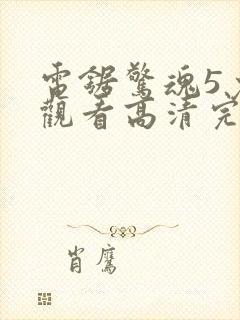 電鋸驚魂5
觀看高清完
肖鷹